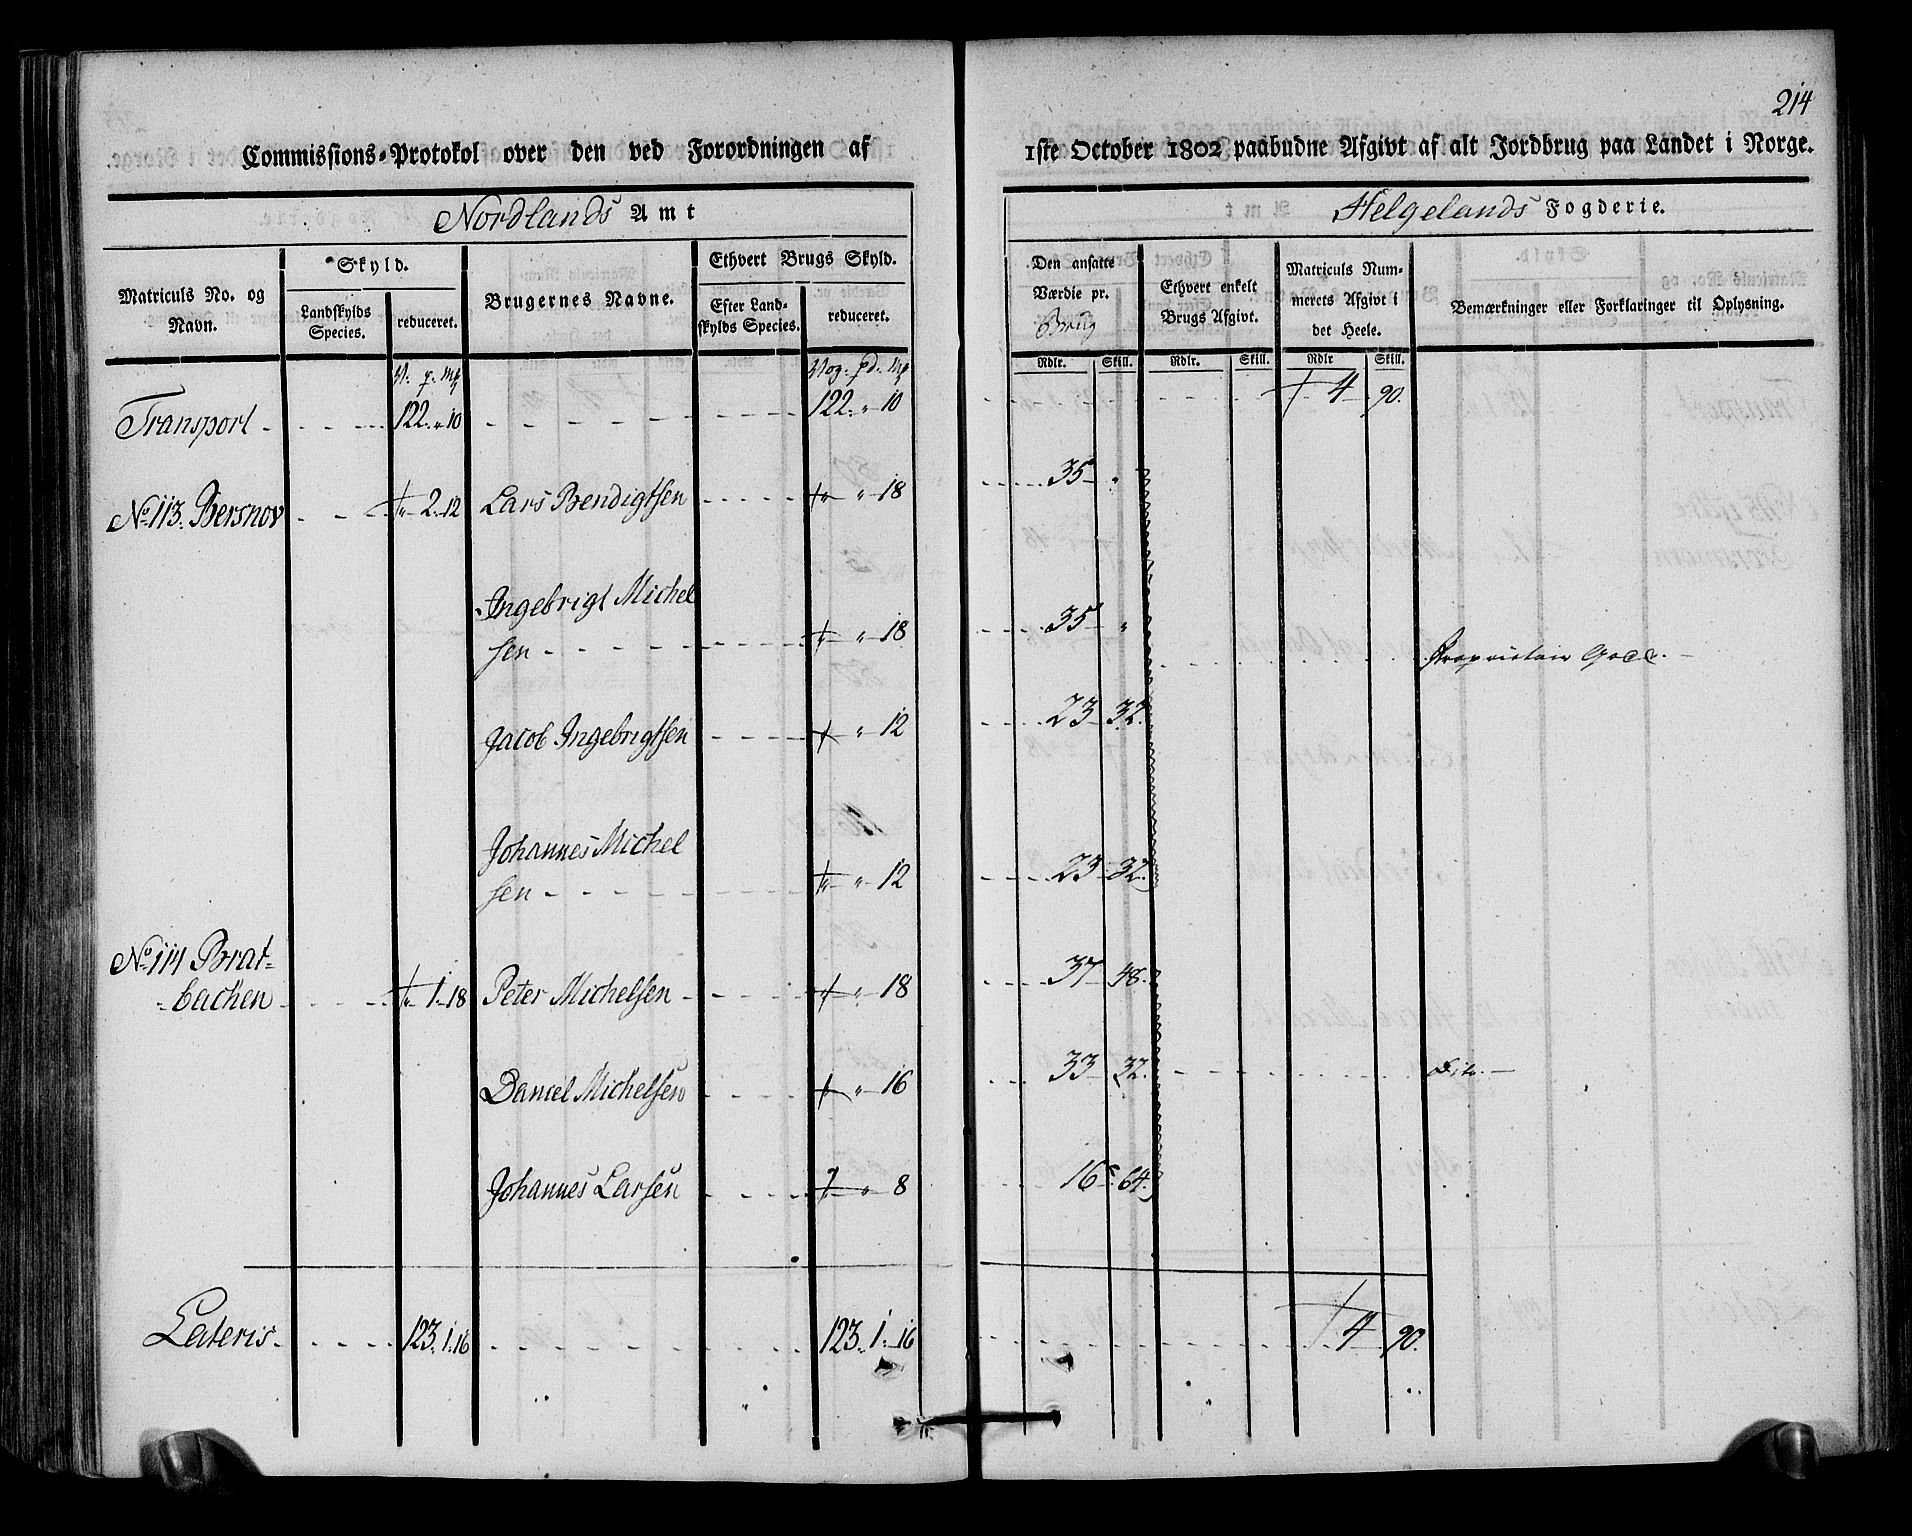 214
Commissions=Protokol over den ved Forordningen af 1ste October 1802 paabudne Afgivt af alt Jordbrug paa Landet i Norge.
Nordlands Amt
Helgelands Fogderie.
Matriculs No. og Navn.
Skyld.
Landskylds Species.
reduceret.
Brugernes Navne.
Ethvert Brugs Skyld.
Efter Landskylds Species.
reduceret.
Den ansatte Værdie pr. Brug
Ethvert enkelt Brugs Afgivt.
Matriculs Nummerets Afgivt i det Heele.
Bemærkninger eller Forklaringer til Oplysning.
Rdlr. Skill. Rdlr. Skill. Rdlr Skill.
V. p. Mk Vog. pd. Mk
Transport 122. " 10 122. " 10 4 90.
No. 113. Bersnov " 2. 12 Lars Bendigtsen " " 18 35 "
Ingebrigt Michel
sen " " 18 35 "
Proprietair Godz.
Jacob Ingebrigtsen " 12 23 32.
Johannes Michel
sen " " 12 23 32.
No. 114 Brat=
=bachen " 1. 18 Peter Michelsen " " 18 37 48.
Daniel Michelsen " " 16 33 32. Dito.
Johannes Larsen " 8 16 64.
Lateris 123. 1. 16 123. 1. 16 4 90.